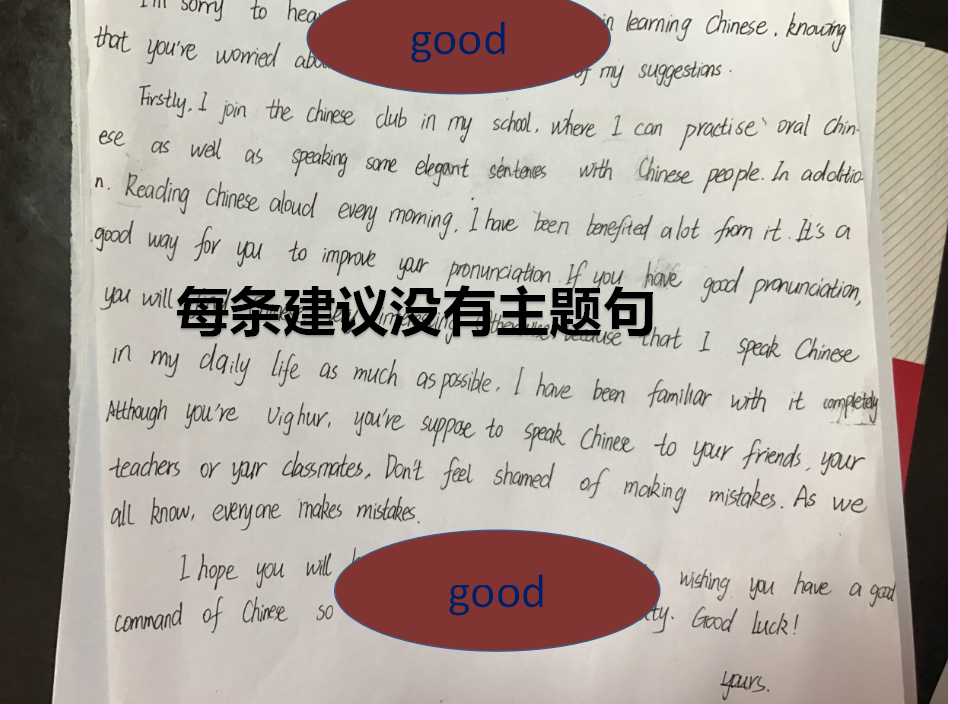 I'm sorry to hea
good
in learning Chinese, knowing
that you're worried abou
of my suggestions.
Firstly, I join the chinese club in my school, where I can practise oral Chin-
ese as well as speaking some elegant sentences with Chinese people. In additio-
n. Reading Chinese aloud every morning, I have been benefited a lot from it. It's a
good way for you to improve your pronunciation. If you have good pronunciation,
you will
每条建议没有主题句
because that I speak Chinese
in my daily life as much as possible, I have been familiar with it completely
Although you're Uighur, you're suppose to speak Chinese to your friends, your
teachers or your classmates, Don't feel shamed of making mistakes. As we
all know, everyone makes mistakes.
I hope you will
good
wishing you have a good
command of Chinese so
ty. Good Luck!
yours.